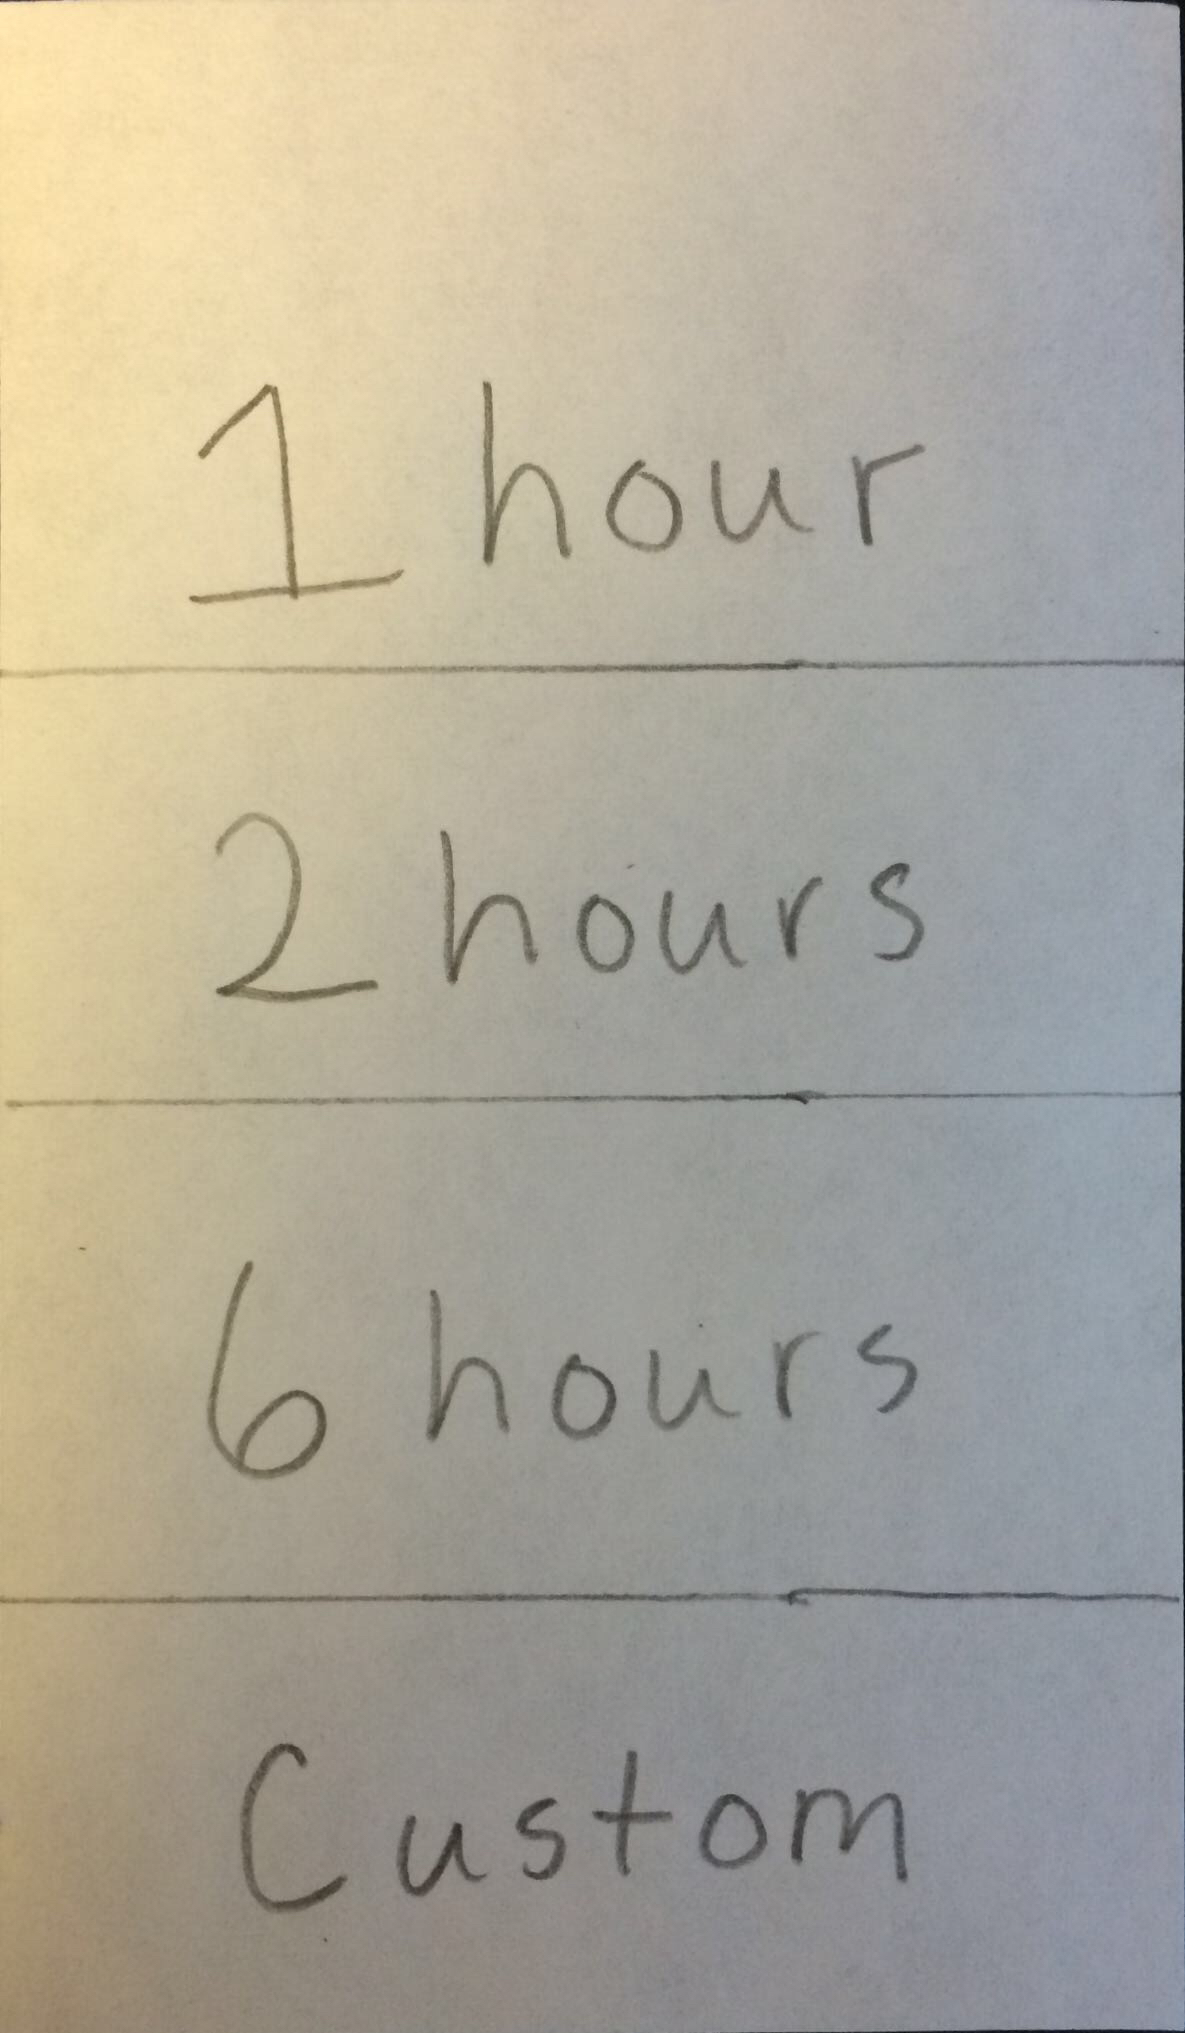 1 hour
2 hours
6 hours
Custom